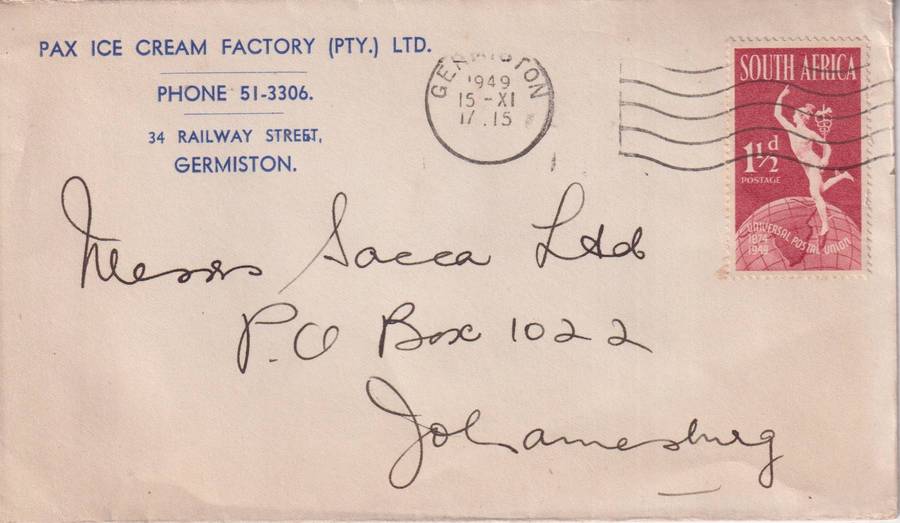 PAX ICE CREAM FACTORY (PTY.) LTD.
PHONE 51-3306.
34 RAILWAY STREET,
GERMISTON.
GERMISTON
1949
15-XI
17.15
SOUTH AFRICA
1½d
POSTAGE
UNIVERSAL POSTAL UNION
1874
1949
Messrs Sacca Ltd
P.O Box 1022
Johannesburg